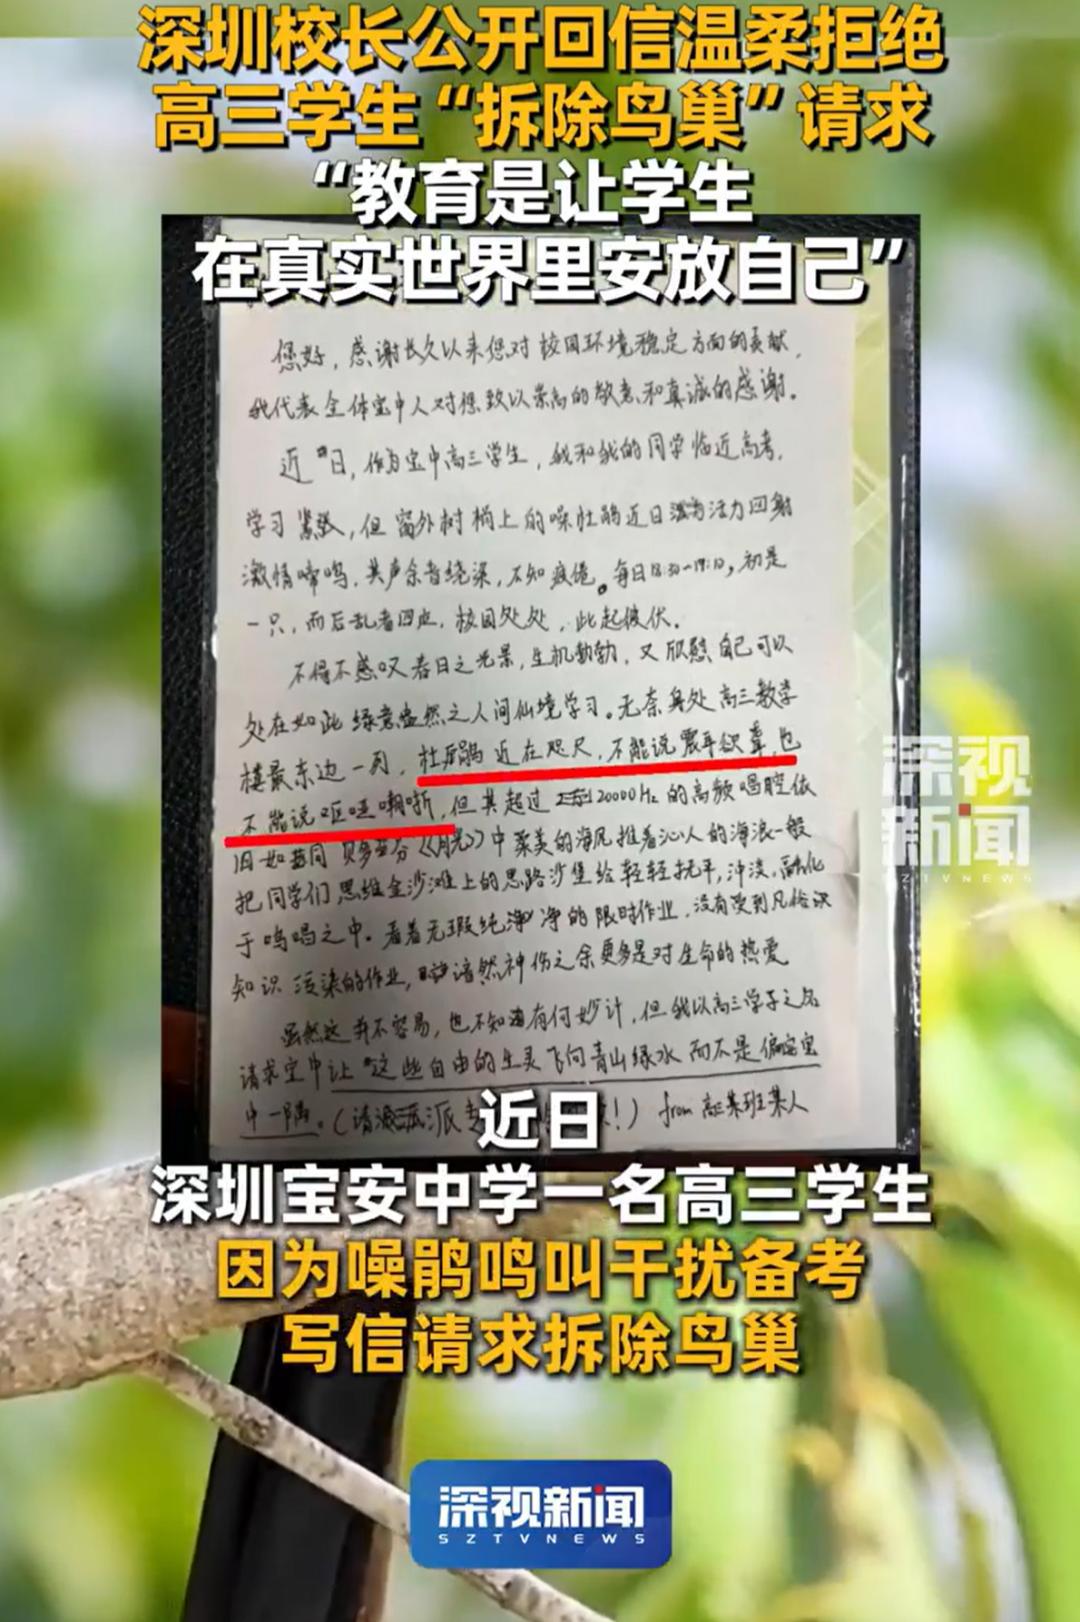 深圳校长公开回信温柔拒绝
高三学生“拆除鸟巢”请求
“教育是让学生
在真实世界里安放自己”
您好，感谢长久以来您对校园环境稳定方面的贡献，
我代表全体宝中人对您致以崇高的敬意和真诚的感谢。
近日，作为宝中高三学生，我和我的同学临近高考，
学习紧张，但窗外树梢上的噪杜鹃近日活力四射
激情啼鸣，其声余音绕梁，不知疲倦。每日18:30-19:10，初是
一只，而后乱者四应，校园处处，此起彼伏。
不得不感叹春日之光景，生机勃勃，又欣慰自己可以
处在如此绿意盎然之人间仙境学习。无奈身处高三教学
楼最东边一列，杜鹃近在咫尺，不能说震耳欲聋，也
不能说呕哑嘲哳，但其超过20000Hz的高频唱腔依
旧如同贝多芬《月光》中柔美的海风推着沁人的海浪一般
把同学们思维金沙滩上的思路沙堡给轻轻抚平，冲淡，融化
于鸣唱之中。看着无瑕纯净的限时作业，没有受到凡俗识
知识污染的作业，黯然神伤之余更多是对生命的热爱
虽然这并不容易，也不知有何妙计，但我以高三学子之名
请求宝中让这些自由的生灵飞向青山绿水而不是偏安宝
中一隅。（请派！）from高三某班某人
深视
新闻
SZTVNEWS
近日
深圳宝安中学一名高三学生
因为噪鹃鸣叫干扰备考
写信请求拆除鸟巢
深视新闻
SZTVNEWS